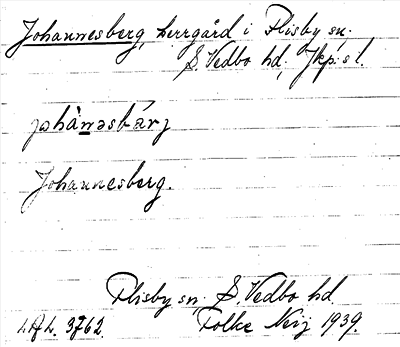 Johannesberg, herrgård i Flisby sn.
S. Vedbo hd, Jkp:s l.
johànəsbárj
Johannesberg.
Flisby sn. S. Vedbo hd
3762. Folke Neij 1939.